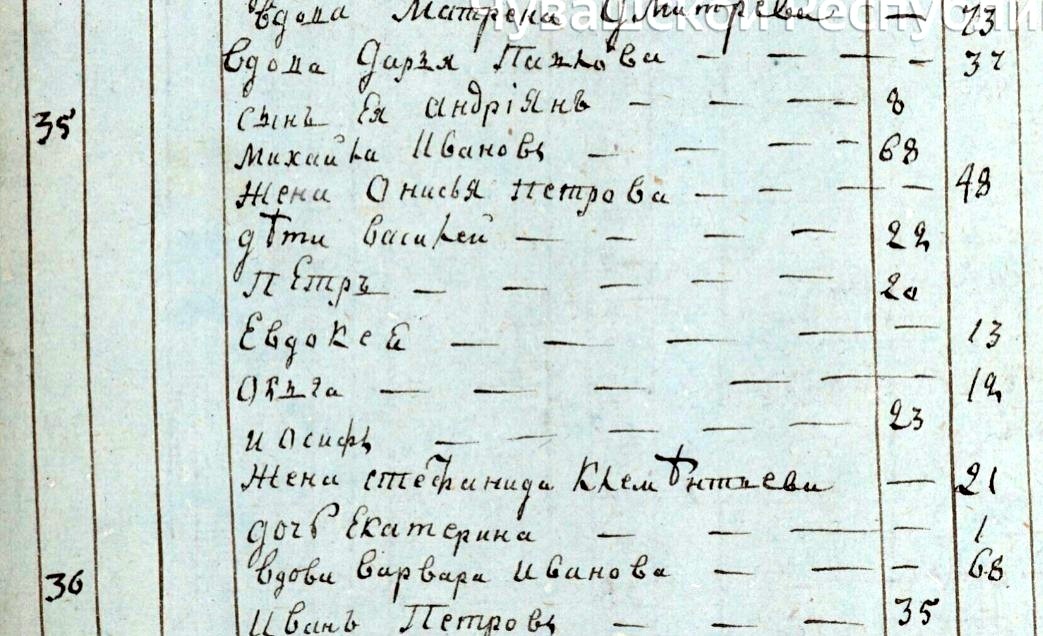 Вдова Матрена Дмитрева — 73
чувашской Республи
Вдова Дарья Павлова — — — — 37
35 сынъ Ея андріянъ — — — 8
михайла Ивановъ — — — — 68
жена Онисья петрова — — — — 48
дѣти василей — — — — 22
пЕтръ — — — — — 20
Евдокея — — — — — 13
Ольга — — — — — 12
иОсифъ — — — — — 23
жена стефанида Клемѣнтиева — 21
дочь Екатерина — — — — 1
вдова варвара иванова — — — 68
36 Иванъ Петровъ — — — 35